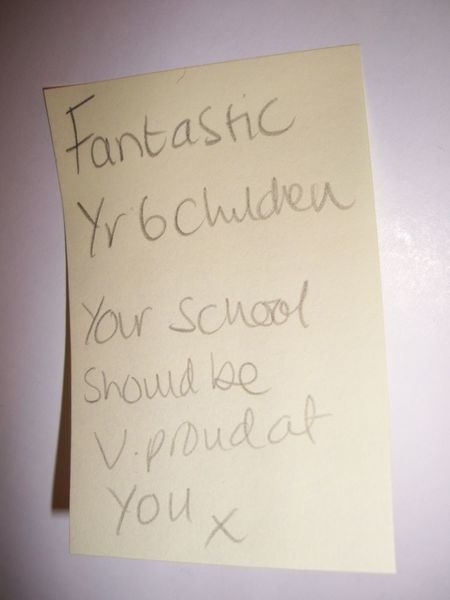 Fantastic
Yr 6 Children
Your School
should be
V. proud at
you x